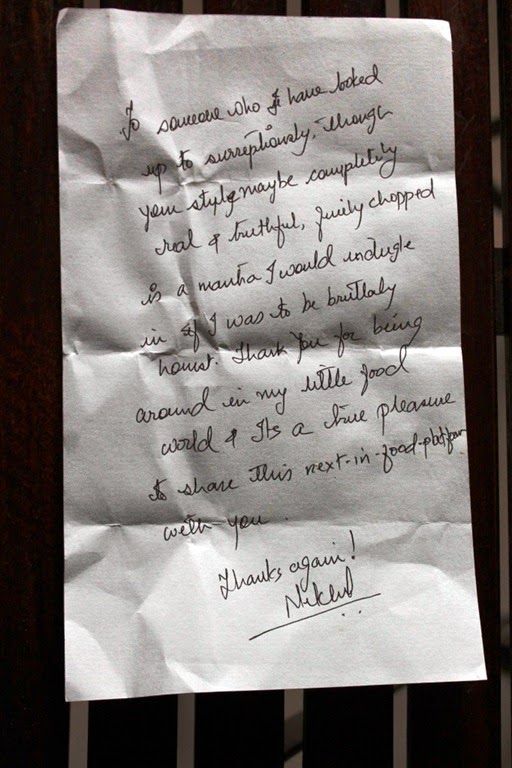 To someone who I have looked
up to surreptiously, though
your style maybe completily
real & truthful, finely chopped
is a mantra I would indugle
in if I was to be bruttaly
honest. Thank you for being
around in my little food
world & Its a true pleasure
to share this next-in-food-platform
with you.
Thanks again!
Nikhil